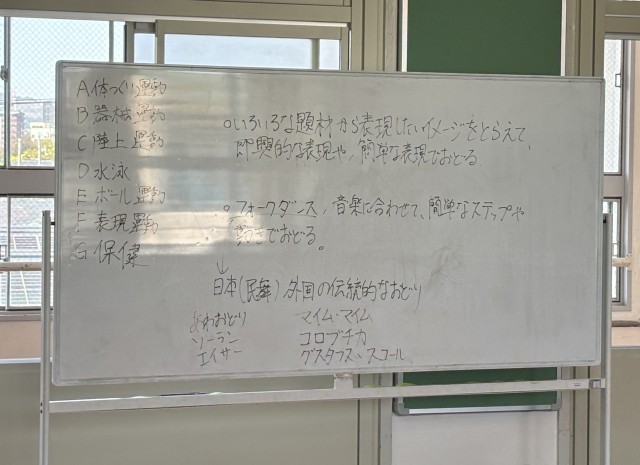 A 体つくり運動
B 器械運動
C 陸上運動
D 水泳
E ボール運動
F 表現運動
G 保健
○いろいろな題材から表現したいイメージをとらえて、
即興的な表現や、簡単な表現でおどる
○フォークダンス、音楽に合わせて、簡単なステップや
動きでおどる。
↓
日本(民舞) 外国の伝統的なおどり
あわおどり マイム・マイム
ソーラン コロブチカ
エイサー グスタフス・スコール